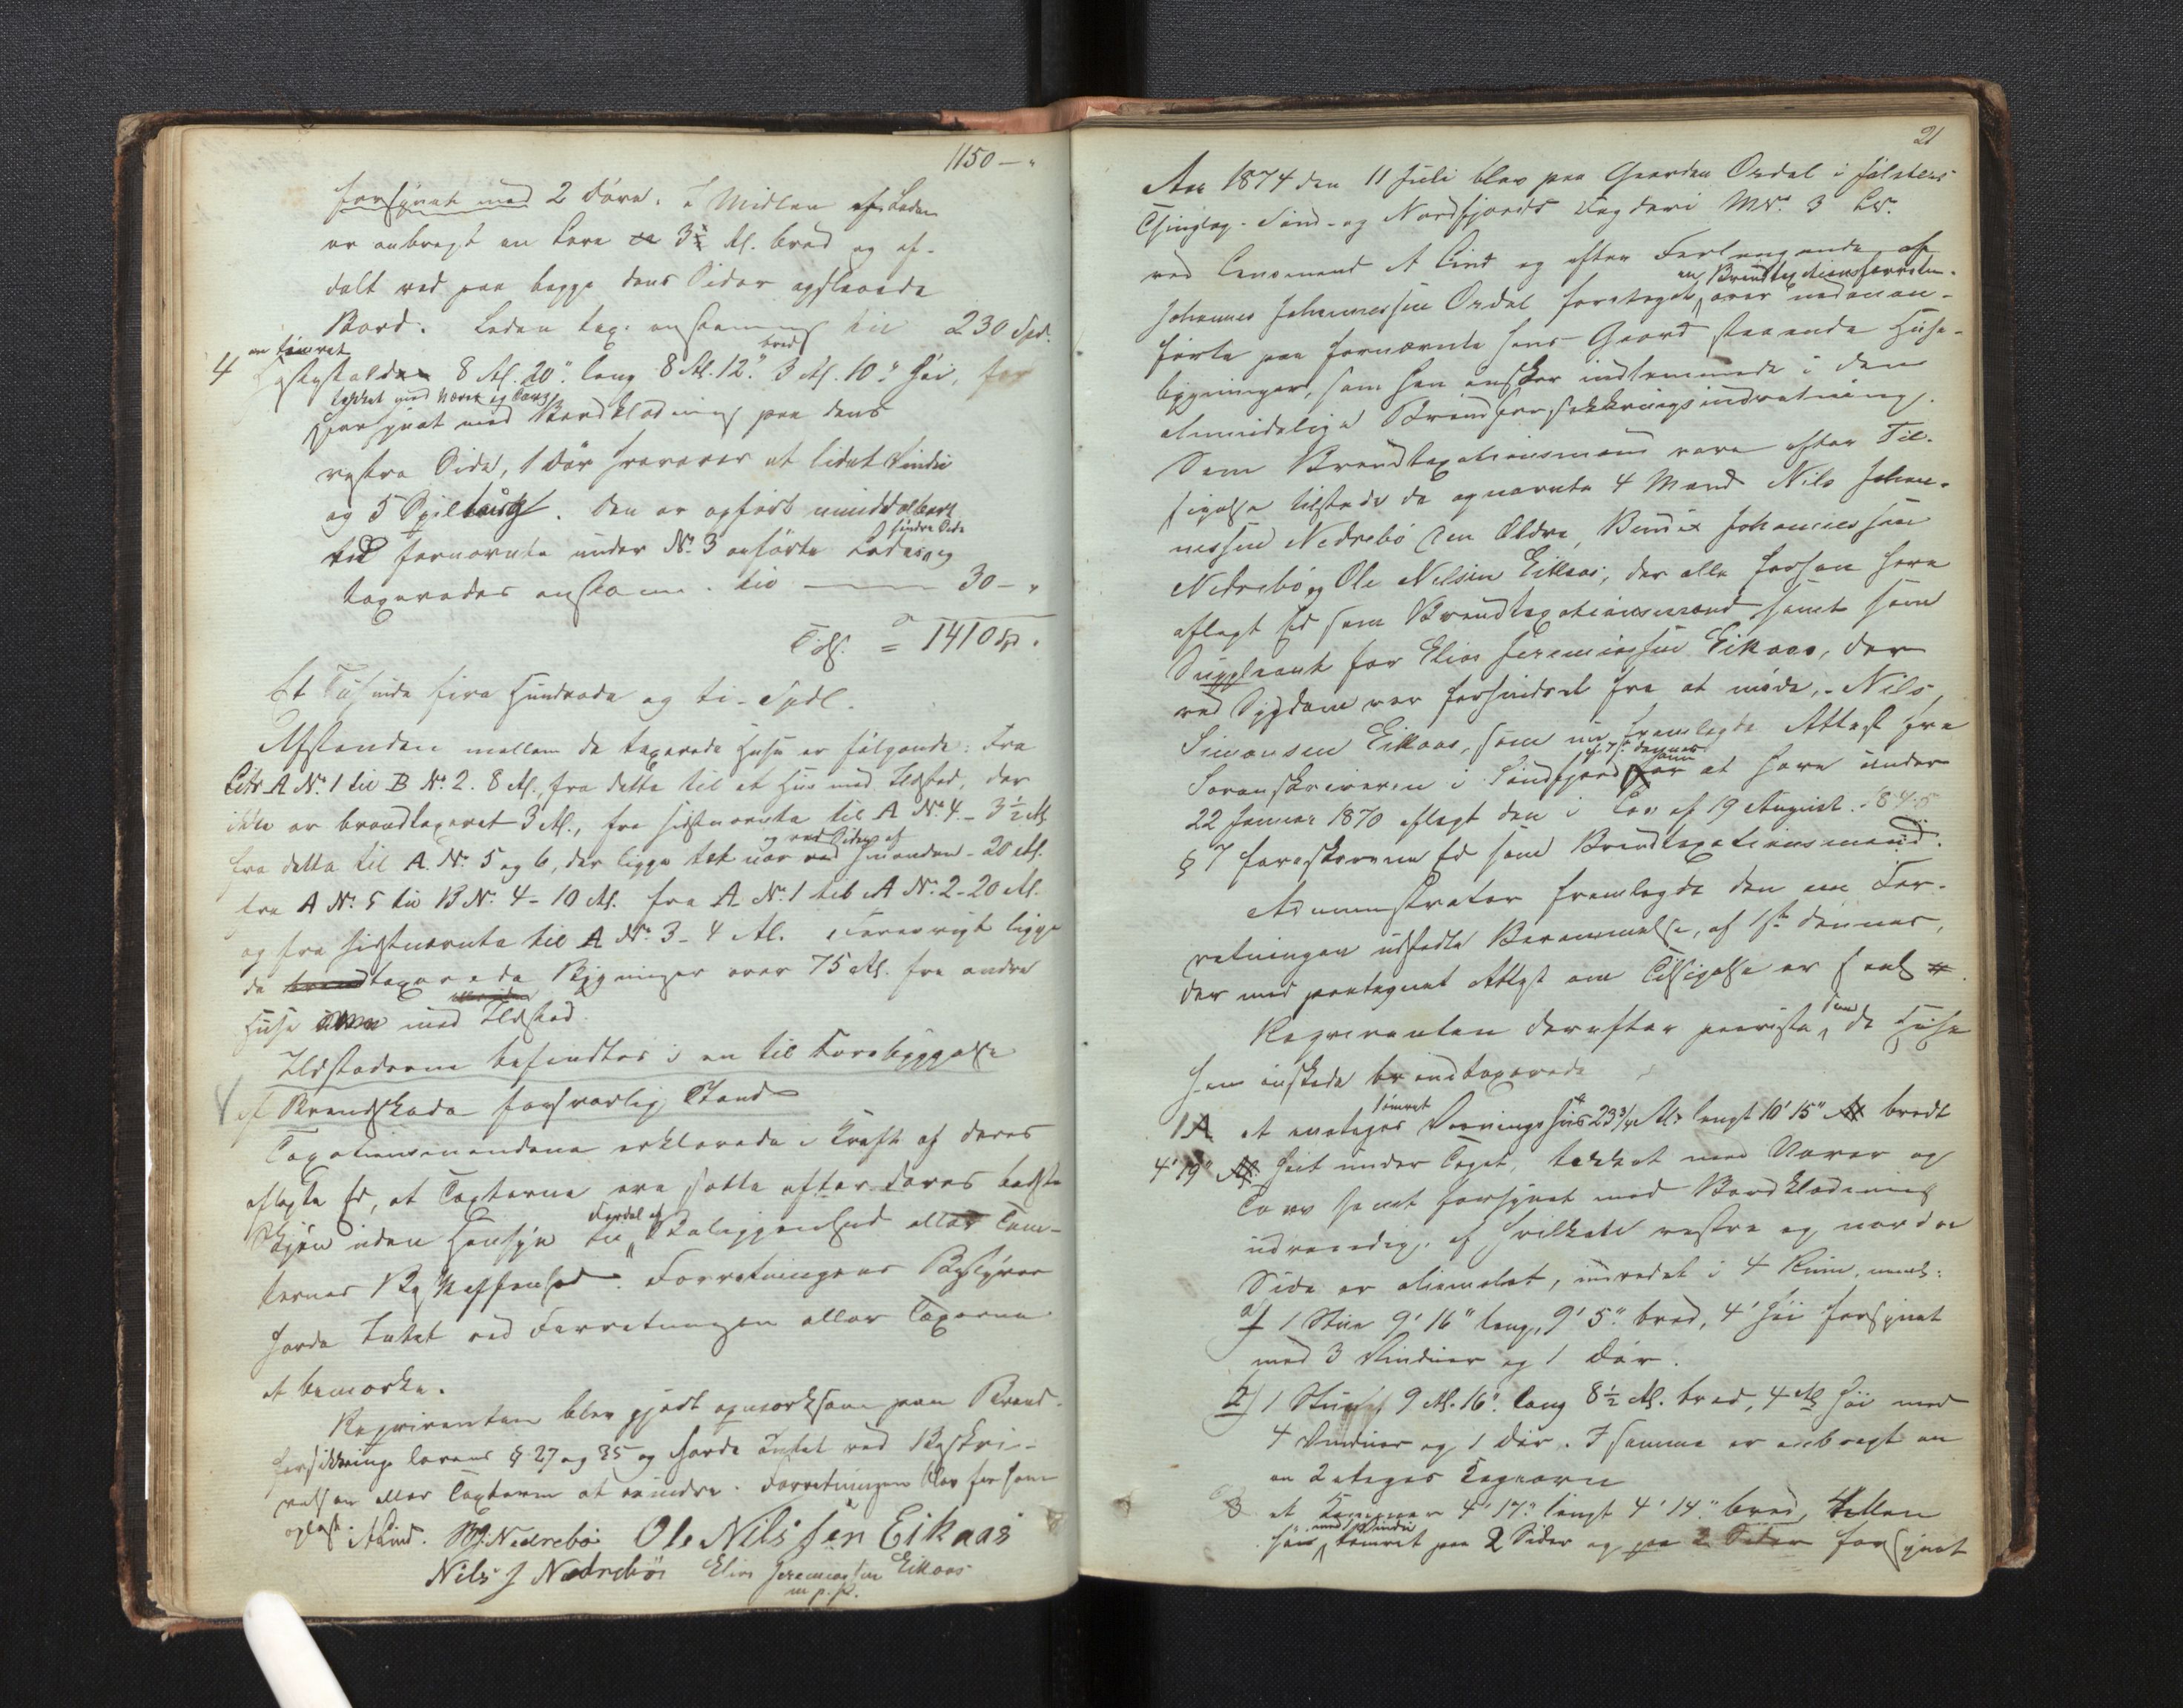 1150 — "
forsynet med 2 Döre. I Midten af Laden
er anbragt en Lave 3 Al. bred og af-
delt ved paa begge dens Sider opslaaede
Bord. Laden tax. enstemmig til 230 Spd.
en tömret bred
4 Hestestalden 8 Al. 20" lang 8 Al. 12" 3 Al. 10" höi, for
tækket med Næver og Torv
forsynet med Bordklædning paa dens
vestre Side, 1 Dör hvorover et lidet Vindu
og 5 Spiltoug. Den er opfört umiddelbart
söndre Side
ved fornævnte under No. 3 anförte Lades og
taxeredes enstemm. til — 30 — "
Tils. = 1410 Sp.
Et Tusinde fire Hundrede og ti - Spdl.
Afstanden mellem de taxerede Huse er fölgende: Fra
Litr A No. 1 til B No. 2. 8 Al., fra dette til et Hus med Ildsted, der
ikke er brandtaxeret 3 Al., fra sidstnævnte til A No. 4 - 3½ Al.
og ved Siden af
fra dette til A. No. 5 og 6, der ligge tæt ved hinanden - 20 Al.
fra A No. 5 til B No. 4 - 10 Al. fra A. No. 1 til A No. 2 - 20 Al.
og fra sidstnævnte til A No. 3 - 4 Al. Forövrigt ligge
de brandtaxerede Bygninger over 75 Al. fra andre
Huse med Ildsted.
Ildstederne befindtes i en til Forebyggelse
af Brandskade forsvarlig Stand
Taxationsmændene erklærede i Kraft af deres
aflagte Ed, at Taxterne ere satte efter deres bedste
Fordel af
Skjön uden Hensyn til Beliggenhed eller Tom-
ternes Beskaffenhed. Forretningens Bestyrer
havde Intet ved Forretningen eller Taxterne
at bemærke.
Reqvirenten blev gjort opmærksom paa Brand-
forsikkringslovens § 27 og 35 og havde Intet ved Beskri-
velsen eller Taxterne at erindre. Forretningen blev for ham
oplæst. A Lind. B J. Nedrebö Ole Nilssen Eikaas
Nils J Nedreböe Elias Jeremiassen Eikaas
m. p. P.
21
Aar 1874 den 11 Juli blev paa Gaarden Ordal i Jölsters
Thinglag - Sönd- og Nordfjords Fogderi MNr. 3 LNr.
ved Lensmand A Lind og efter Forlangende af
en Brandtaxationsforretn.
Johannes Johannessen Ordal foretaget over nedenan-
förte paa fornævnte hans Gaard staaende Huse-
bygninger, som han önsker indlemmede i den
almindelige Brandforsikkringsindretning.
Som Brandtaxationsmænd vare efter Til-
sigelse tilstede de opnævnte 4 Mænd Nils Johan-
nessen Nedrebö den Ældre, Bendix Johannessen
Nedrebö og Ole Nilssen Eikaas, der alle forhen have
aflagt Ed som Brandtaxationsmænd samt som
Suppleant for Elias Jeremiassen Eikaas, der
ved Sygdom var forhindret fra at möde, - Nils
Simonsen Eikaas, som nu fremlagde Attest fra
Sorenskriveren i Söndfjord at have under
22 Januar 1870 aflagt den i Lov af 19 August 1845
§ 7 foreskrevne Ed som Brandtaxationsmand.
Administrator fremlagde den om For-
retningen udstedte Berammelse, af 1ste dennes,
der med paategnet Attest om Tilsigelse er saal.
Reqvirenten derefter paaviste dem de Huse
han önskede brandtaxerede
tömret
1 A et enetages Vaaningshus 23¾ Al. langt 10' 15" bredt
4' 19" höit under Taget, tækket med Næver og
Torv samt forsynet med Bordklædning
udvendig, af hvilket vestre og nordre
Side er oliemalet, inredet i 4 Rum, neml:
a) 1 Stue 9' 16" lang, 9' 5" bred, 4' höi forsynet
med 3 Vinduer og 1 Dör.
b) 1 Stue 9 Al. 16" lang 8½ Al. bred, 4 Al. höi med
4 Vinduer og 1 Dör. I samme er anbragt en
en 2 etages Kogeovn
3 et Kammer 4' 17" langt 4' 14" bred,
med 1 Vindu
höit, tömret paa 2 Sider og paa 2 Sider forsynet